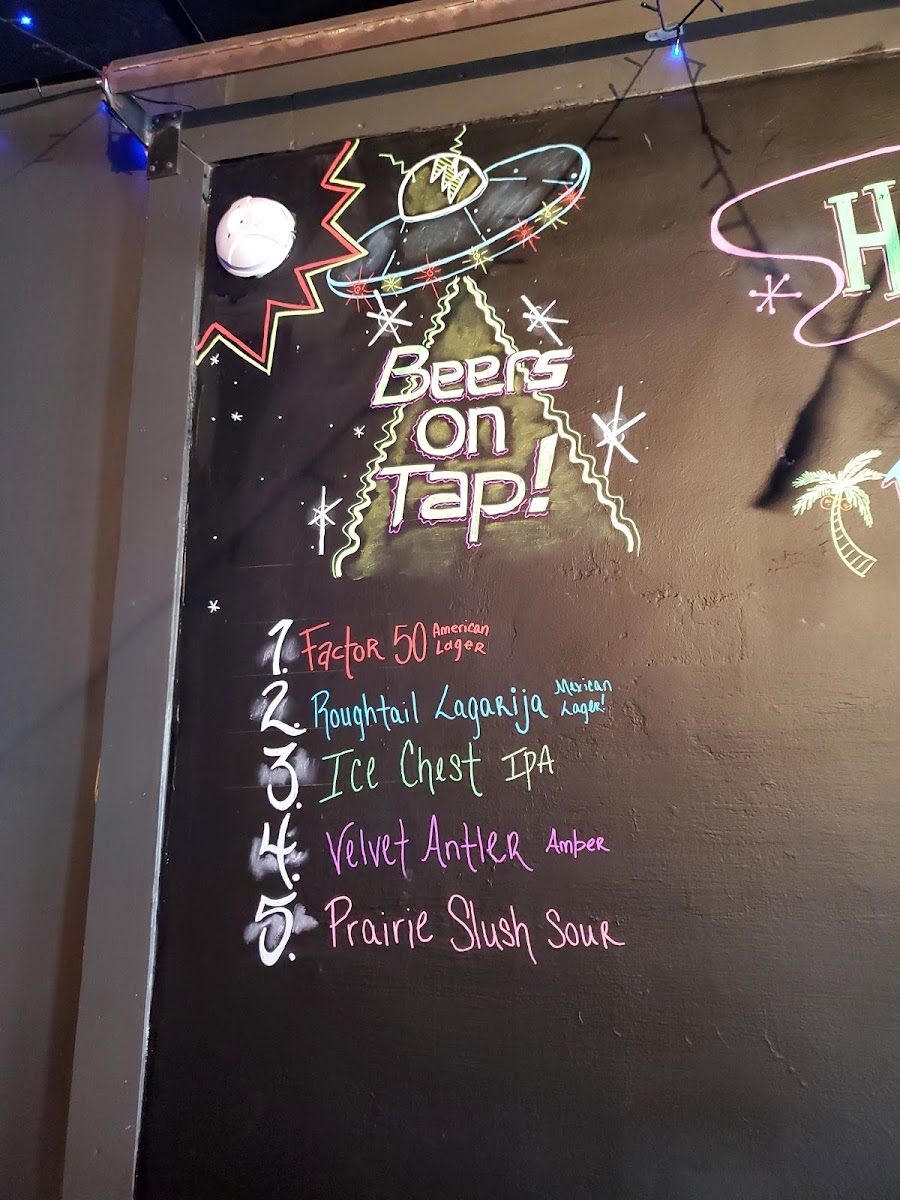 Beers
on
Tap!
H
1. Factor 50 American Lager
2. Roughtail Lagarija Mexican Lager!
3. Ice Chest IPA
4. Velvet Antler Amber
5. Prairie Slush Sour